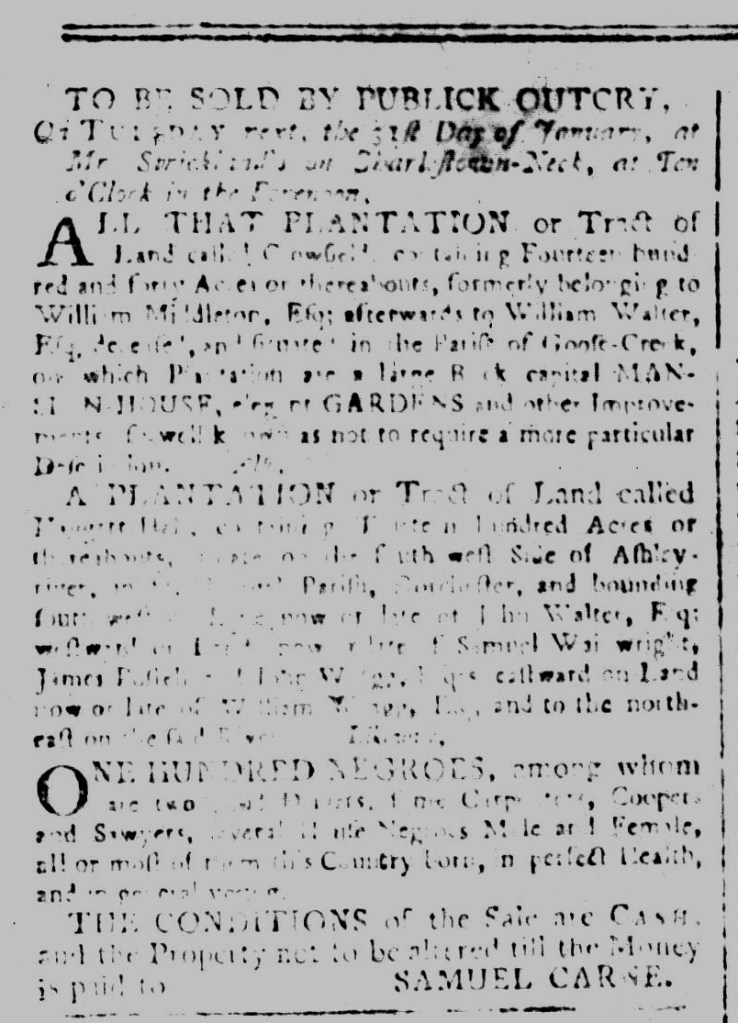 TO BE SOLD BY PUBLICK OUTCRY,
On TUESDAY next, the 31ſt Day of January, at
Mr. Strickland's on Charleſtown-Neck, at Ten
o'Clock in the Forenoon,
ALL THAT PLANTATION or Tract of
Land called Crowfield, containing Fourteen hund
red and forty Acres or thereabouts, formerly belonging to
William Middleton, Eſq; afterwards to William Walter,
Eſq, deceaſed, and ſituated in the Pariſh of Gooſe-Creek,
on which Plantation are a large Brick capital MAN-
SION-HOUSE, elegant GARDENS and other Improve-
ments, ſo well known as not to require a more particular
Deſcription.
A PLANTATION or Tract of Land called
containing Hundred Acres or
thereabouts, on the ſouth weſt Side of Aſhley-
river, in Pariſh, Dorcheſter, and bounding
ſouth weſt on now or late of John Walter, Eſq;
weſtward on now or late of Samuel Wainwright,
James Poſtell and John Wragg, Eſqrs eaſtward on Land
now or late of William Wragg, Eſq, and to the north-
eaſt on the ſaid River. Likewiſe,
ONE HUNDRED NEGROES, among whom
are two good Drivers, ſome Carpenters, Coopers
and Sawyers, ſeveral Houſe Negroes Male and Female,
all or moſt of them this Country born, in perfect Health,
and in general young.
THE CONDITIONS of the Sale are CASH,
and the Property not to be altered till the Money
is paid to SAMUEL CARNE.